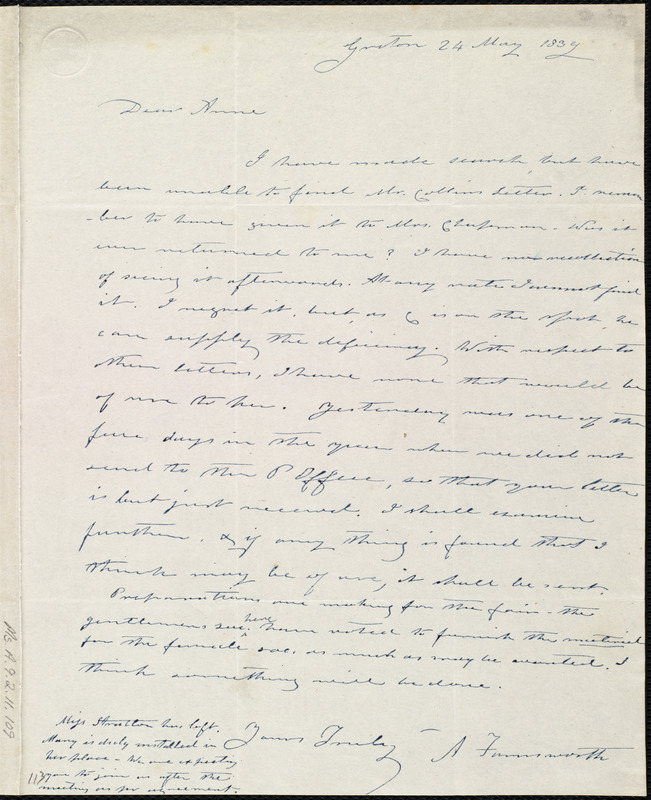 Groton 24 May 1839
Dear Anne
I have made search, but have
been unable to find Mr. Collins letter. I remem
-ber to have given it to Mrs. Chapman. Was it
ever returned to me? I have no recollection
of seeing it afterwards. At any rate I cannot find
it. I regret it, but, as C is on the spot, he
can supply the deficiency. With respect to
other letters, I have none that would be
of use to her. Yesterday was one of the
few days in the year when we did not
send to the P Office, so that your letter
is but just received. I shall examine
further, & if any thing is found that I
think may be of use, it shall be sent.
Preparations are making for the fair - the
gentlemens soc. here have voted to furnish the material
for the female soc. as much as may be wanted. I
think something will be done.
Yours Truly
A Farnsworth
Miss Stratton has left.
Mary is duly installed in
her place - We are expecting
you to join us after the
meeting as per agreement.
Ms.A.9.2.11.109